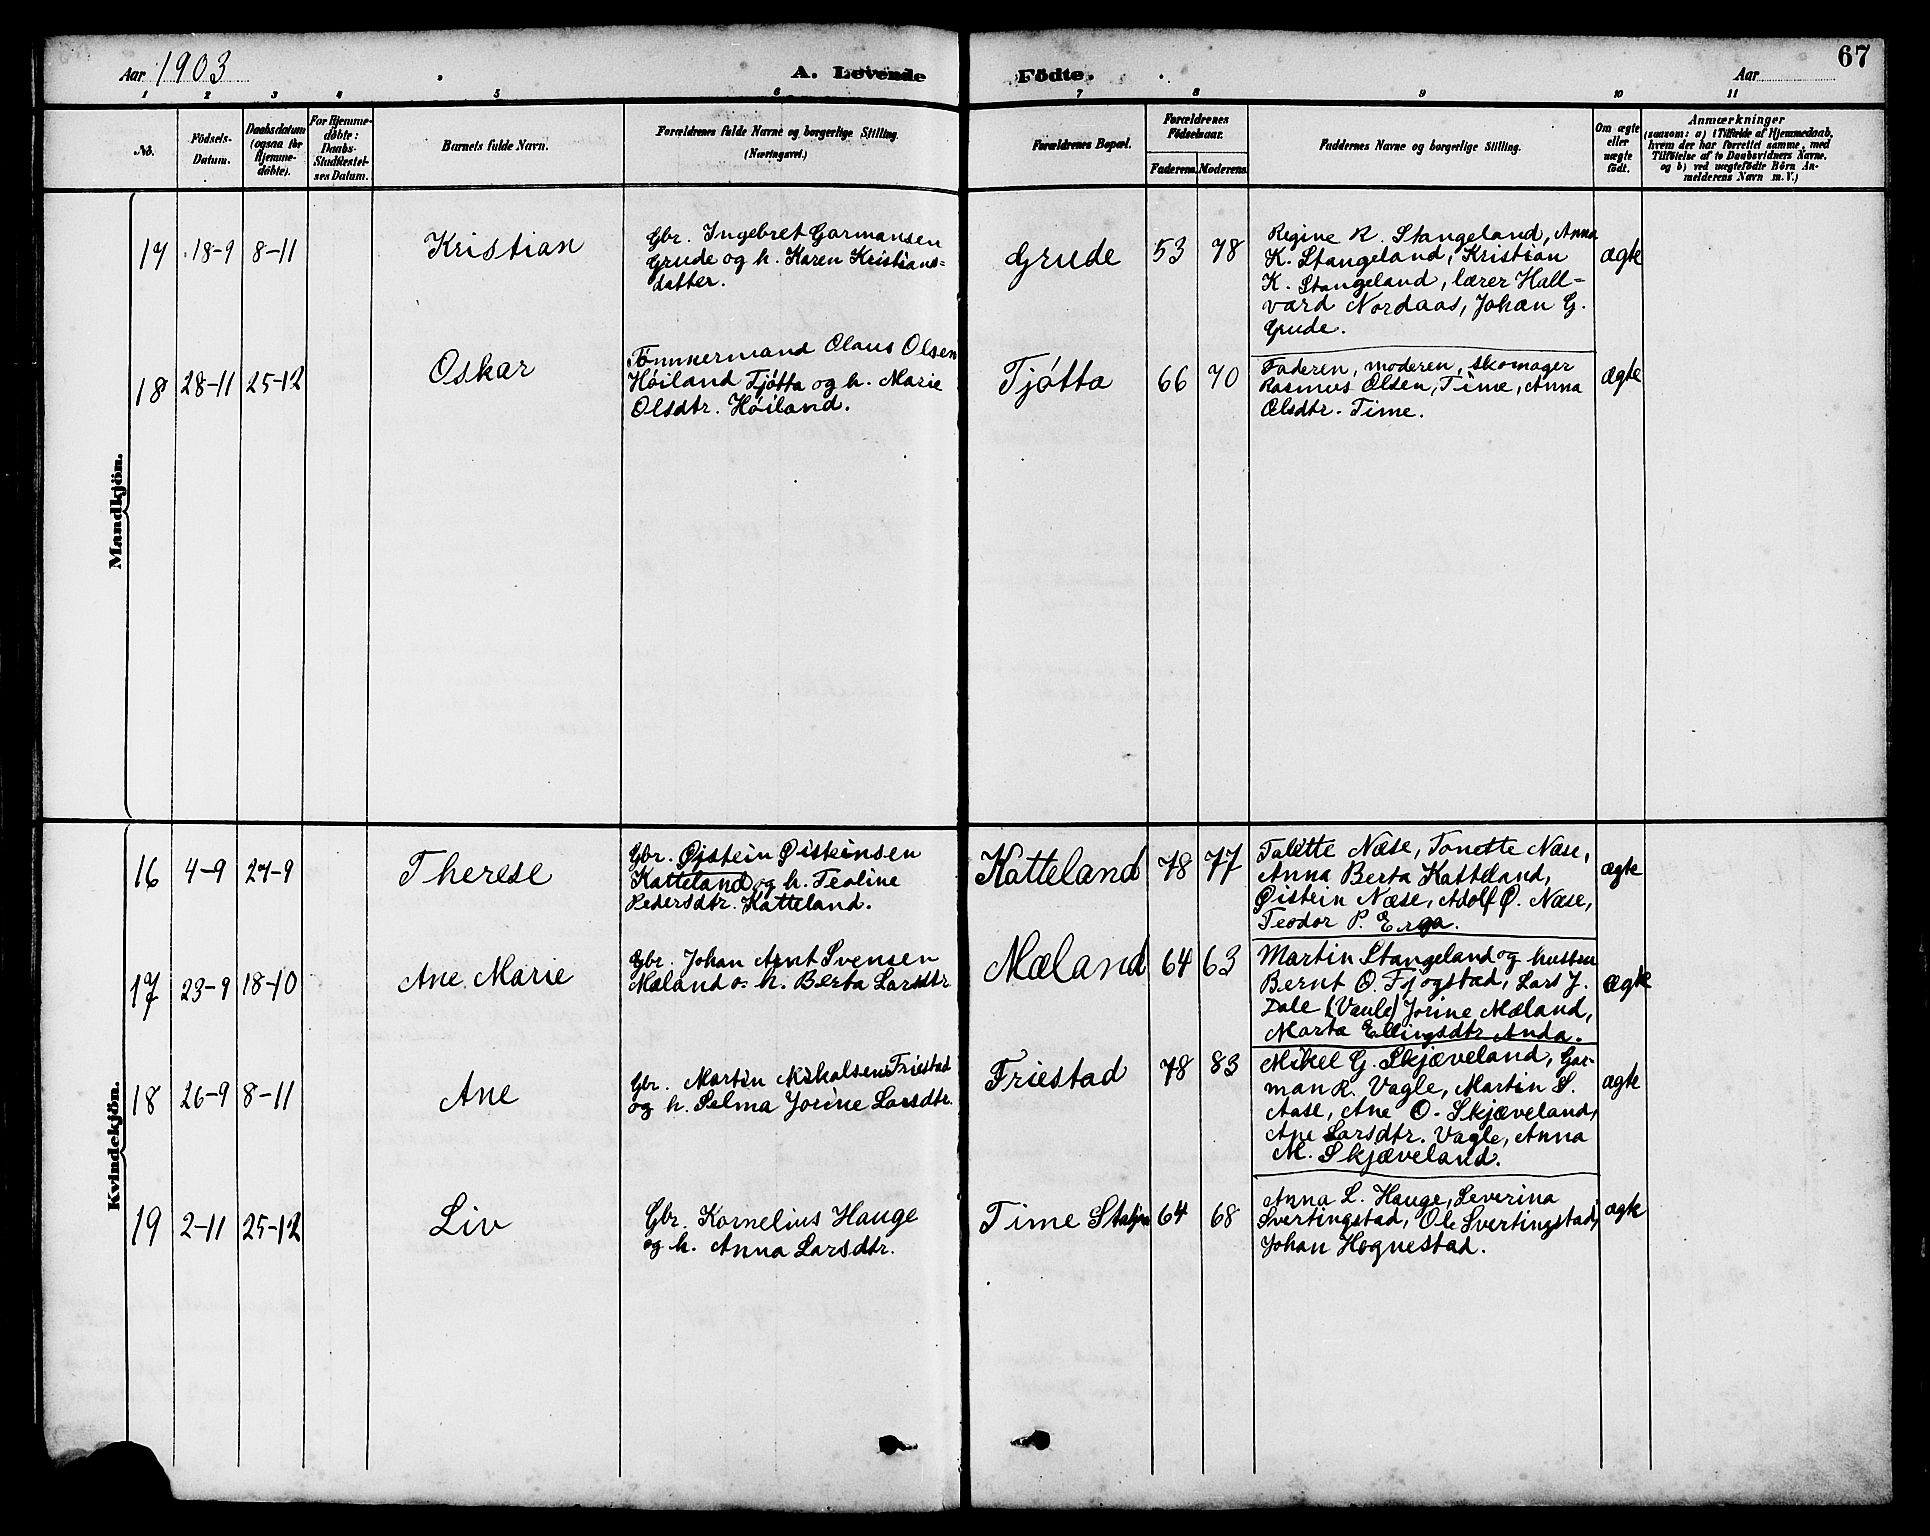 Aar 1903
A. Levende
Födte.
Aar
67
1 2 3 4 5 6 7 8 9 10 11
No.
Födsels-
Datum.
Daabsdatum
(ogsaa for
Hjemme-
döbte).
For Hjemme-
döbte:
Daabs-
Stadfæstel-
ses Datum.
Barnets fulde Navn.
Forældrenes fulde Navne og borgerlige Stilling.
(Næringsvei.)
Forældrenes Bopæl.
Forældrenes
Födselsaar.
Faderens. Moderens.
Faddernes Navne og borgerlige Stilling.
Om ægte
eller
uægte
födt.
Anmærkninger
(saasom: a) i Tilfælde af Hjemmedaab,
hvem der har forrettet samme, med
Tilföielse af to Daabsvidners Navne,
og b) ved uægtefödte Börn An-
melderens Navn m. V.)
Mandkjön.
17 18-9 8-11
Kristian
Gbr. Ingebret Gormansen
Grude og h. Karen Kristians-
datter.
Grude 53 78
Regine R. Stangeland, Anna
K. Stangeland, Kristian
K. Stangeland, lærer Hall-
vard Nordaas, Johan G.
Grude.
ægte
18 28-11 25-12
Oskar
Tømmermand Olaus Olsen
Høiland Tjøtta og h. Marie
Olsdtr. Høiland.
Tjøtta 66 70
Faderen, moderen, skomager
Rasmus Olsen, Time, Anna
Olsdtr. Time.
ægte
Kvindekjön.
16 4-9 27-9
Therese
Gbr. Øistein Øisteinsen
Katteland og h. Teoline
Pedersdtr. Katteland.
Katteland 78 77
Talette Næse, Tonette Næse,
Anna Berta Katteland,
Øistein Næse, Adolf Ø. Næse,
Teodor P. Erga.
ægte
17 23-9 18-10
Ane Marie
Gbr. Johan Arnt Svensen
Mæland o. h. Berta Larsdtr.
Mæland 64 63
Martin Stangeland og hustru
Bernt O. Fjogstad, Lars J.
Dale (Vaule) Jorine Mæland,
Marta Ellingsdtr Anda.
ægte
18 26-9 8-11
Ane
Gbr. Martin Mikalsen Friestad
og h. Selma Jorine Larsdtr.
Friestad 78 83
Mikel G. Skjæveland, Gar-
man R. Vagle, Martin S.
Aase, Ane O. Skjæveland,
Ane Larsdtr. Vagle, Anna
M. Skjæveland.
ægte
19 2-11 25-12
Liv
Gbr. Kornelius Hauge
og h. Anna Larsdtr.
Time 64 68
Anna L. Hauge, Severina
Svertingstad, Ole Svertingstad,
Johan Hognestad.
ægte